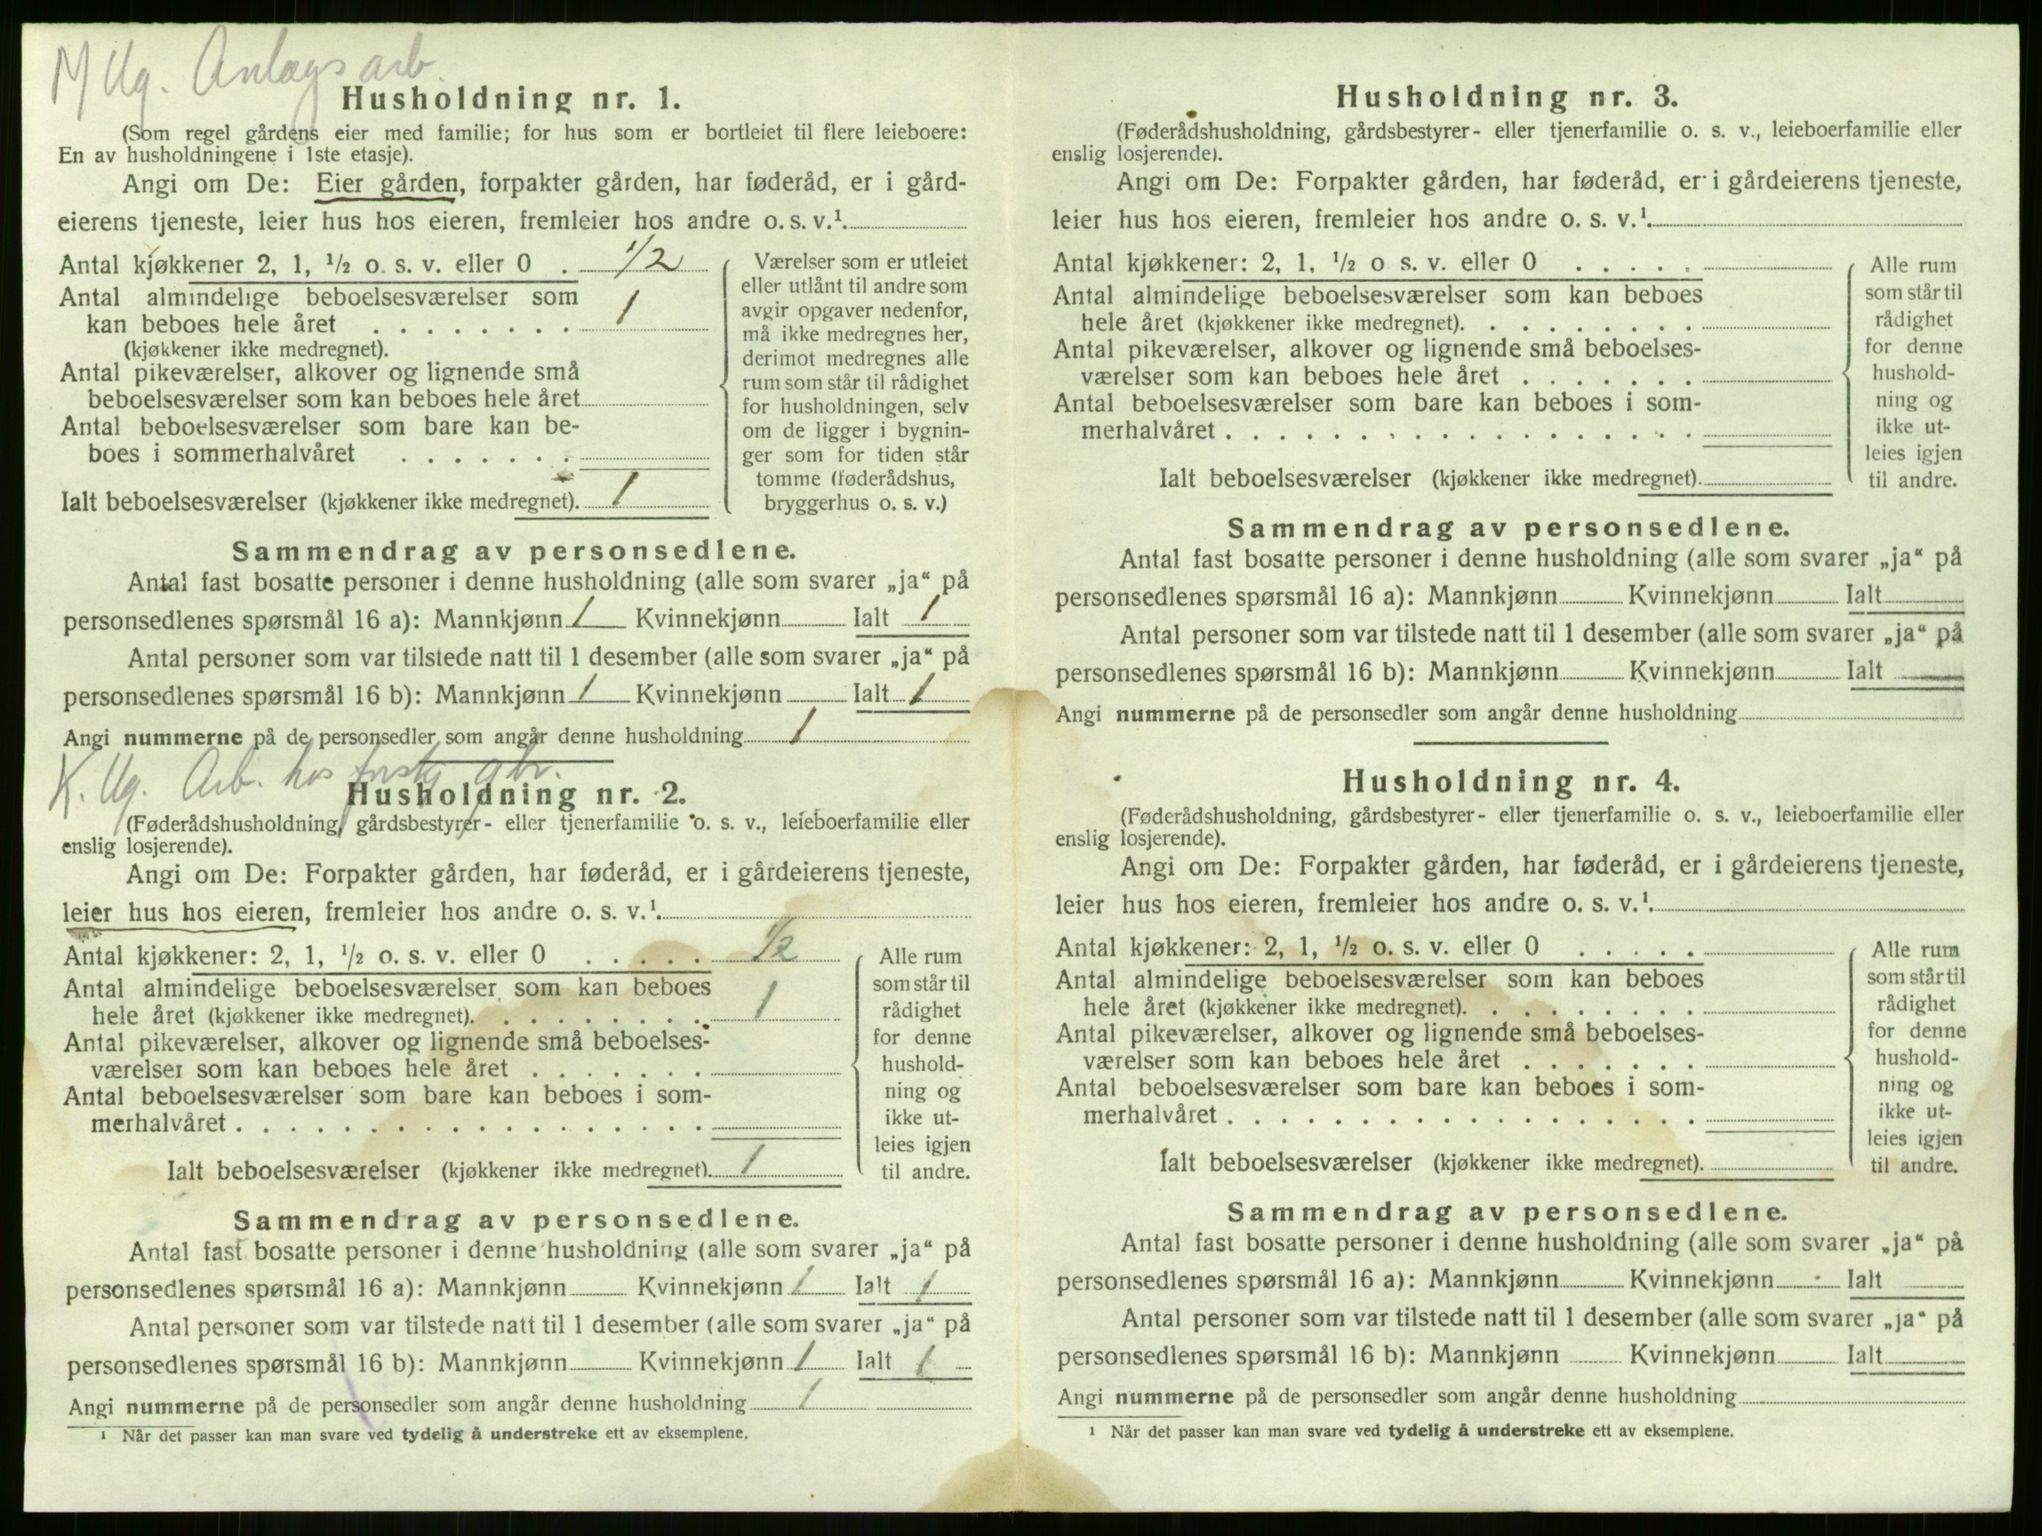 M Ug. Anlægsarb.
Husholdning nr. 1.
(Som regel gårdens eier med familie; for hus som er bortleiet til flere leieboere:
En av husholdningene i 1ste etasje).
Angi om De: Eier gården, forpakter gården, har føderåd, er i gård-
eierens tjeneste, leier hus hos eieren, fremleier hos andre o. s. v.¹
Antal kjøkkener 2, 1, ½ o. s. v. eller 0 . 1/2
Antal almindelige beboelsesværelser som
kan beboes hele året . . . . . . . . 1
(kjøkkener ikke medregnet).
Antal pikeværelser, alkover og lignende små
beboelsesværelser som kan beboes hele året
Antal beboelsesværelser som bare kan be-
boes i sommerhalvåret . . . . . . .
Ialt beboelsesværelser (kjøkkener ikke medregnet). 1
Værelser som er utleiet
eller utlånt til andre som
avgir opgaver nedenfor,
må ikke medregnes her,
derimot medregnes alle
rum som står til rådighet
for husholdningen, selv
om de ligger i bygnin-
ger som for tiden står
tomme (føderådshus,
bryggerhus o. s. v.)
Sammendrag av personsedlene.
Antal fast bosatte personer i denne husholdning (alle som svarer „ja“ på
personsedlenes spørsmål 16 a): Mannkjønn 1 Kvinnekjønn Ialt 1
Antal personer som var tilstede natt til 1 desember (alle som svarer „ja“ på
personsedlenes spørsmål 16 b): Mannkjønn 1 Kvinnekjønn Ialt 1
Angi nummerne på de personsedler som angår denne husholdning 1
K. Ug. Arb. hos forskj. gbr.
Husholdning nr. 2.
(Føderådshusholdning, gårdsbestyrer- eller tjenerfamilie o. s. v., leieboerfamilie eller
enslig losjerende).
Angi om De: Forpakter gården, har føderåd, er i gårdeierens tjeneste,
leier hus hos eieren, fremleier hos andre o. s. v.¹
Antal kjøkkener: 2, 1, ½ o. s. v. eller 0 . . . . . 1/2
Antal almindelige beboelsesværelser som kan beboes
hele året (kjøkkener ikke medregnet). . . . . . . . . 1
Antal pikeværelser, alkover og lignende små beboelses-
værelser som kan beboes hele året . . . . . . .
Antal beboelsesværelser som bare kan beboes i som-
merhalvåret . . . . . . . . . . . . . . . . . .
Ialt beboelsesværelser (kjøkkener ikke medregnet). 1
Alle rum
som står til
rådighet
for denne
hushold-
ning og
ikke ut-
leies igjen
til andre.
Sammendrag av personsedlene.
Antal fast bosatte personer i denne husholdning (alle som svarer „ja“ på
personsedlenes spørsmål 16 a): Mannkjønn Kvinnekjønn 1 Ialt 1
Antal personer som var tilstede natt til 1 desember (alle som svarer „ja“ på
personsedlenes spørsmål 16 b): Mannkjønn Kvinnekjønn 1 Ialt 1
Angi nummerne på de personsedler som angår denne husholdning 1
¹ Når det passer kan man svare ved tydelig å understreke ett av eksemplene.
Husholdning nr. 3.
(Føderådshusholdning, gårdsbestyrer- eller tjenerfamilie o. s. v., leieboerfamilie eller
enslig losjerende).
Angi om De: Forpakter gården, har føderåd, er i gårdeierens tjeneste,
leier hus hos eieren, fremleier hos andre o. s. v.¹
Antal kjøkkener: 2, 1, ½ o s. v. eller 0 . . . . .
Antal almindelige beboelsesværelser som kan beboes
hele året (kjøkkener ikke medregnet). . . . . . . . .
Antal pikeværelser, alkover og lignende små beboelses-
værelser som kan beboes hele året . . . . . . .
Antal beboelsesværelser som bare kan beboes i som-
merhalvåret . . . . . . . . . . . . . . . . . .
Ialt beboelsesværelser (kjøkkener ikke medregnet).
Alle rum
som står til
rådighet
for denne
hushold-
ning og
ikke ut-
leies igjen
til andre.
Sammendrag av personsedlene.
Antal fast bosatte personer i denne husholdning (alle som svarer „ja“ på
personsedlenes spørsmål 16 a): Mannkjønn Kvinnekjønn Ialt
Antal personer som var tilstede natt til 1 desember (alle som svarer „ja“ på
personsedlenes spørsmål 16 b): Mannkjønn Kvinnekjønn Ialt
Angi nummerne på de personsedler som angår denne husholdning
Husholdning nr. 4.
(Føderådshusholdning, gårdsbestyrer- eller tjenerfamilie o. s. v., leieboerfamilie eller
enslig losjerende).
Angi om De: Forpakter gården, har føderåd, er i gårdeierens tjeneste,
leier hus hos eieren, fremleier hos andre o. s. v.¹
Antal kjøkkener: 2, 1, ½ o. s. v. eller 0 . . . . .
Antal almindelige beboelsesværelser som kan beboes
hele året (kjøkkener ikke medregnet). . . . . . . . .
Antal pikeværelser, alkover og lignende små beboelses-
værelser som kan beboes hele året . . . . . . .
Antal beboelsesværelser som bare kan beboes i som-
merhalvåret . . . . . . . . . . . . . . . . . .
Ialt beboelsesværelser (kjøkkener ikke medregnet).
Alle rum
som står til
rådighet
for denne
hushold-
ning og
ikke ut-
leies igjen
til andre.
Sammendrag av personsedlene.
Antal fast bosatte personer i denne husholdning (alle som svarer „ja“ på
personsedlenes spørsmål 16 a): Mannkjønn Kvinnekjønn Ialt
Antal personer som var tilstede natt til 1 desember (alle som svarer „ja“ på
personsedlenes spørsmål 16 b): Mannkjønn Kvinnekjønn Ialt
Angi nummerne på de personsedler som angår denne husholdning
¹ Når det passer kan man svare ved tydelig å understreke ett av eksemplene.